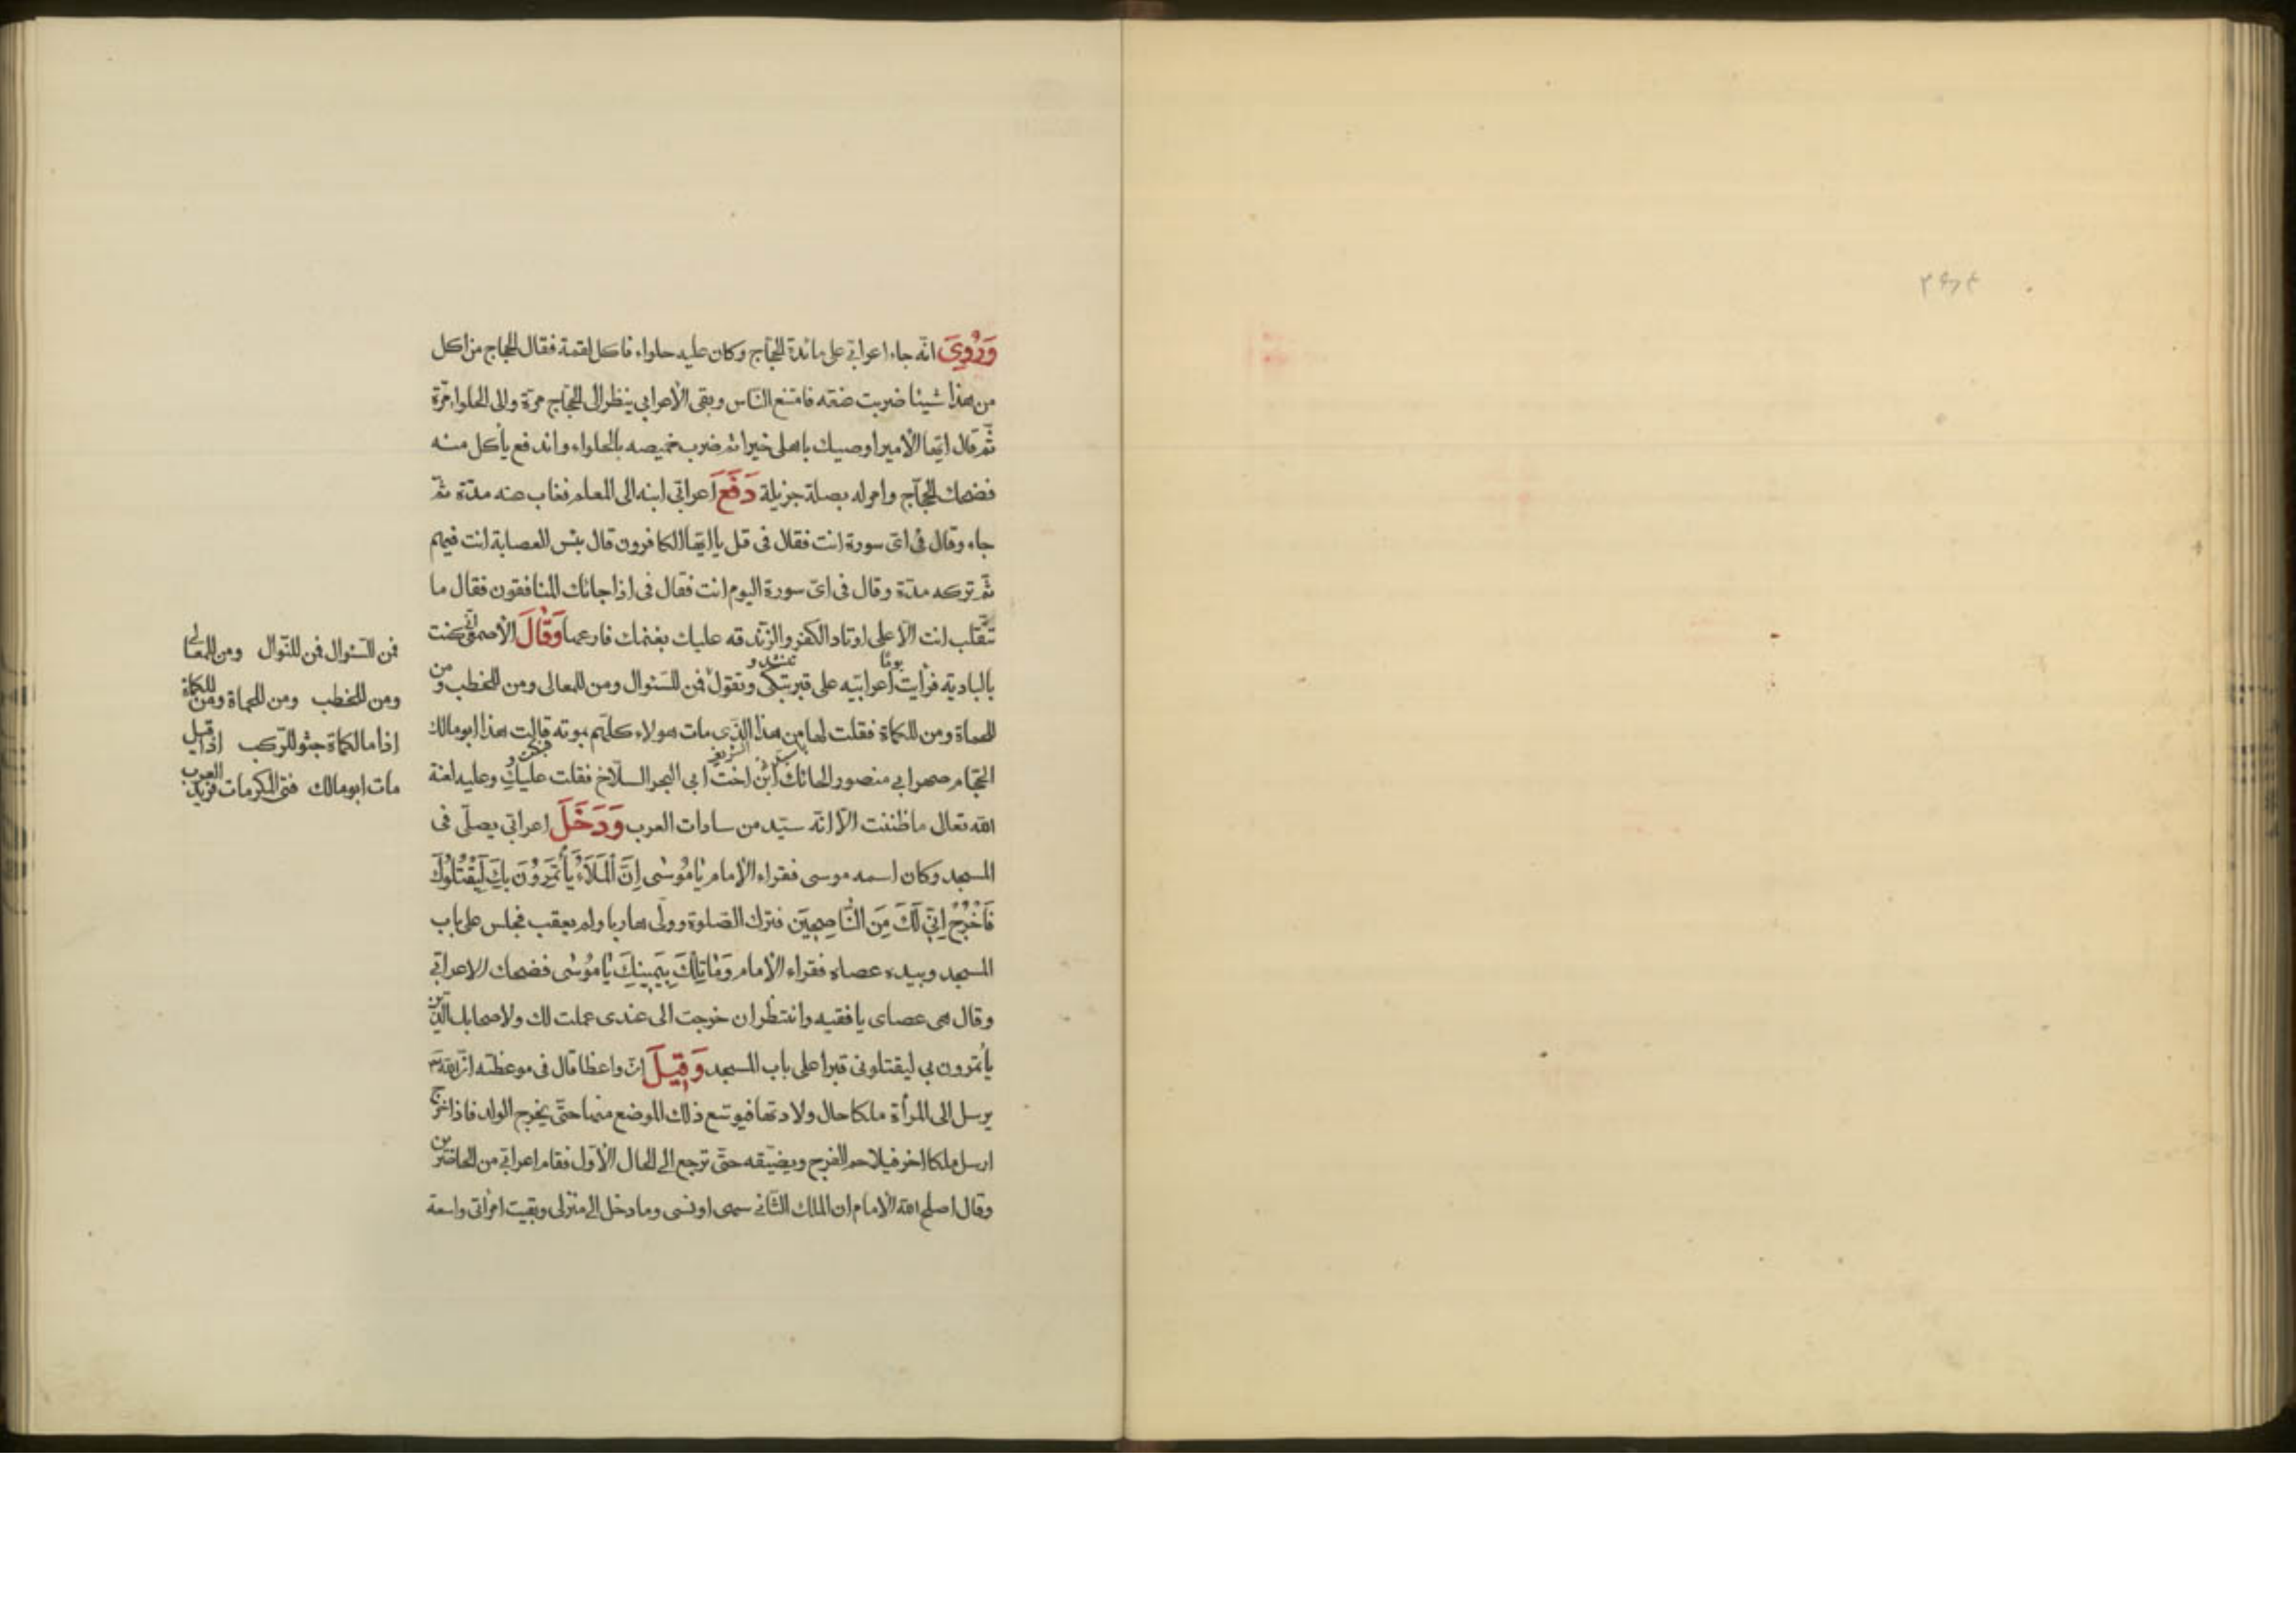 وَرُوِيَ انّه جاء اعرابّي على مائدة الحجّاج وكان عليه حلواء فاكل لقمة فقال الحجاج من اكل
من هذا شيئا ضربت عنقه فامتنع النّاس وبقى الأعرابي ينظر الى الحجّاج مرّة والى الحلواء مرّة
ثمّ قال ايّها الأمير اوصيك باهلى خيرا ثم ضرب خميصه بالحلواء واندفع يأكل منه
فضحك الحجّاج وامر له بصلة جزيلة دَفَعَ اعرابّي ابنه الى المعلم فغاب عنه مدّة ثمّ
جاء وقال فى اىّ سورة انت فقال فى قل يا ايّها الكافرون قال بئس العصابة انت فيهم
ثمّ تركه مدّة وقال فى اىّ سورة اليوم انت فقال فى اذا جائك المنافقون فقال ما
تتقّلب انت الّا على اوتاد الكفر والزّندقه عليك بغنمك فارعها وَقَالَ الأصمعى كنت
بالباديّة فرأيت يومًا اعرابيّه على قبر تبكى وتقول تنشد و فمن للسّئوال ومن للمعالى ومن للخطب ومن
للحماة ومن للكماة فقلت لها من هذا الّذى مات هولاء كلّهم بموته قالت هذا ابومالك
الحجّام صهر ابي منصور الحائك ابن اخت ابي البحر السلّاخ فقلت عليكِ وعليه لعنة
الله تعالى ما ظننت الّا انّه سيّد من سادات العرب وَدَخَلَ اعرابّي يصلّى فى
المسجد وكان اسمه موسى فقراء الأمام يَامُوسٰى اِنَّ اْلمَلَاَءَ يَأتَمِرُونَ بِكَ لِيَقْتُلُوكَ
فَاَخْرُجْ اِنّي لَكَ مِنَ النّاصِحِينَ فترك الصّلوة وولّى هاربا ولم يعقب فجلس على باب
المسجد وبيده عصاه فقراء الأمام وَمٰا تِلْكَ بِيَمِينِكَ يٰامُوسٰى فضحك الاعرابّي
وقال هى عصاى يا فقيه وانتظر ان خرجت الى عندى عملت لك ولاصحابك الّذين
يأتمرون بي ليقتلونى قبرا على باب المسجد وَقِيلَ انّ واعظا قال فى موعظته انّ الله
يرسل الى المرأة ملكا حال ولادتها فيوسّع ذلك الموضع منها حتّى يخرج الولد فاذا خرج
ارسل ملكا اخر فيلاحم الفرج ويضيّقه حتّى ترجع الى الحال الأوّل فقام اعرابّي من الحاضرين
وقال اصلح الله الأمام ان الملك الثّانى سهى او نسى وما دخل الى منزلى وبقيت امرأتى واسعة
فمن للسّئوال فمن للنّوال ومن للمعالى
ومن للخطب ومن للحماة ومن للكماة
اذا ما الكماة جثو للرّكب اذا قيل
مات ابومالك فتى المكرمات فريد العرب